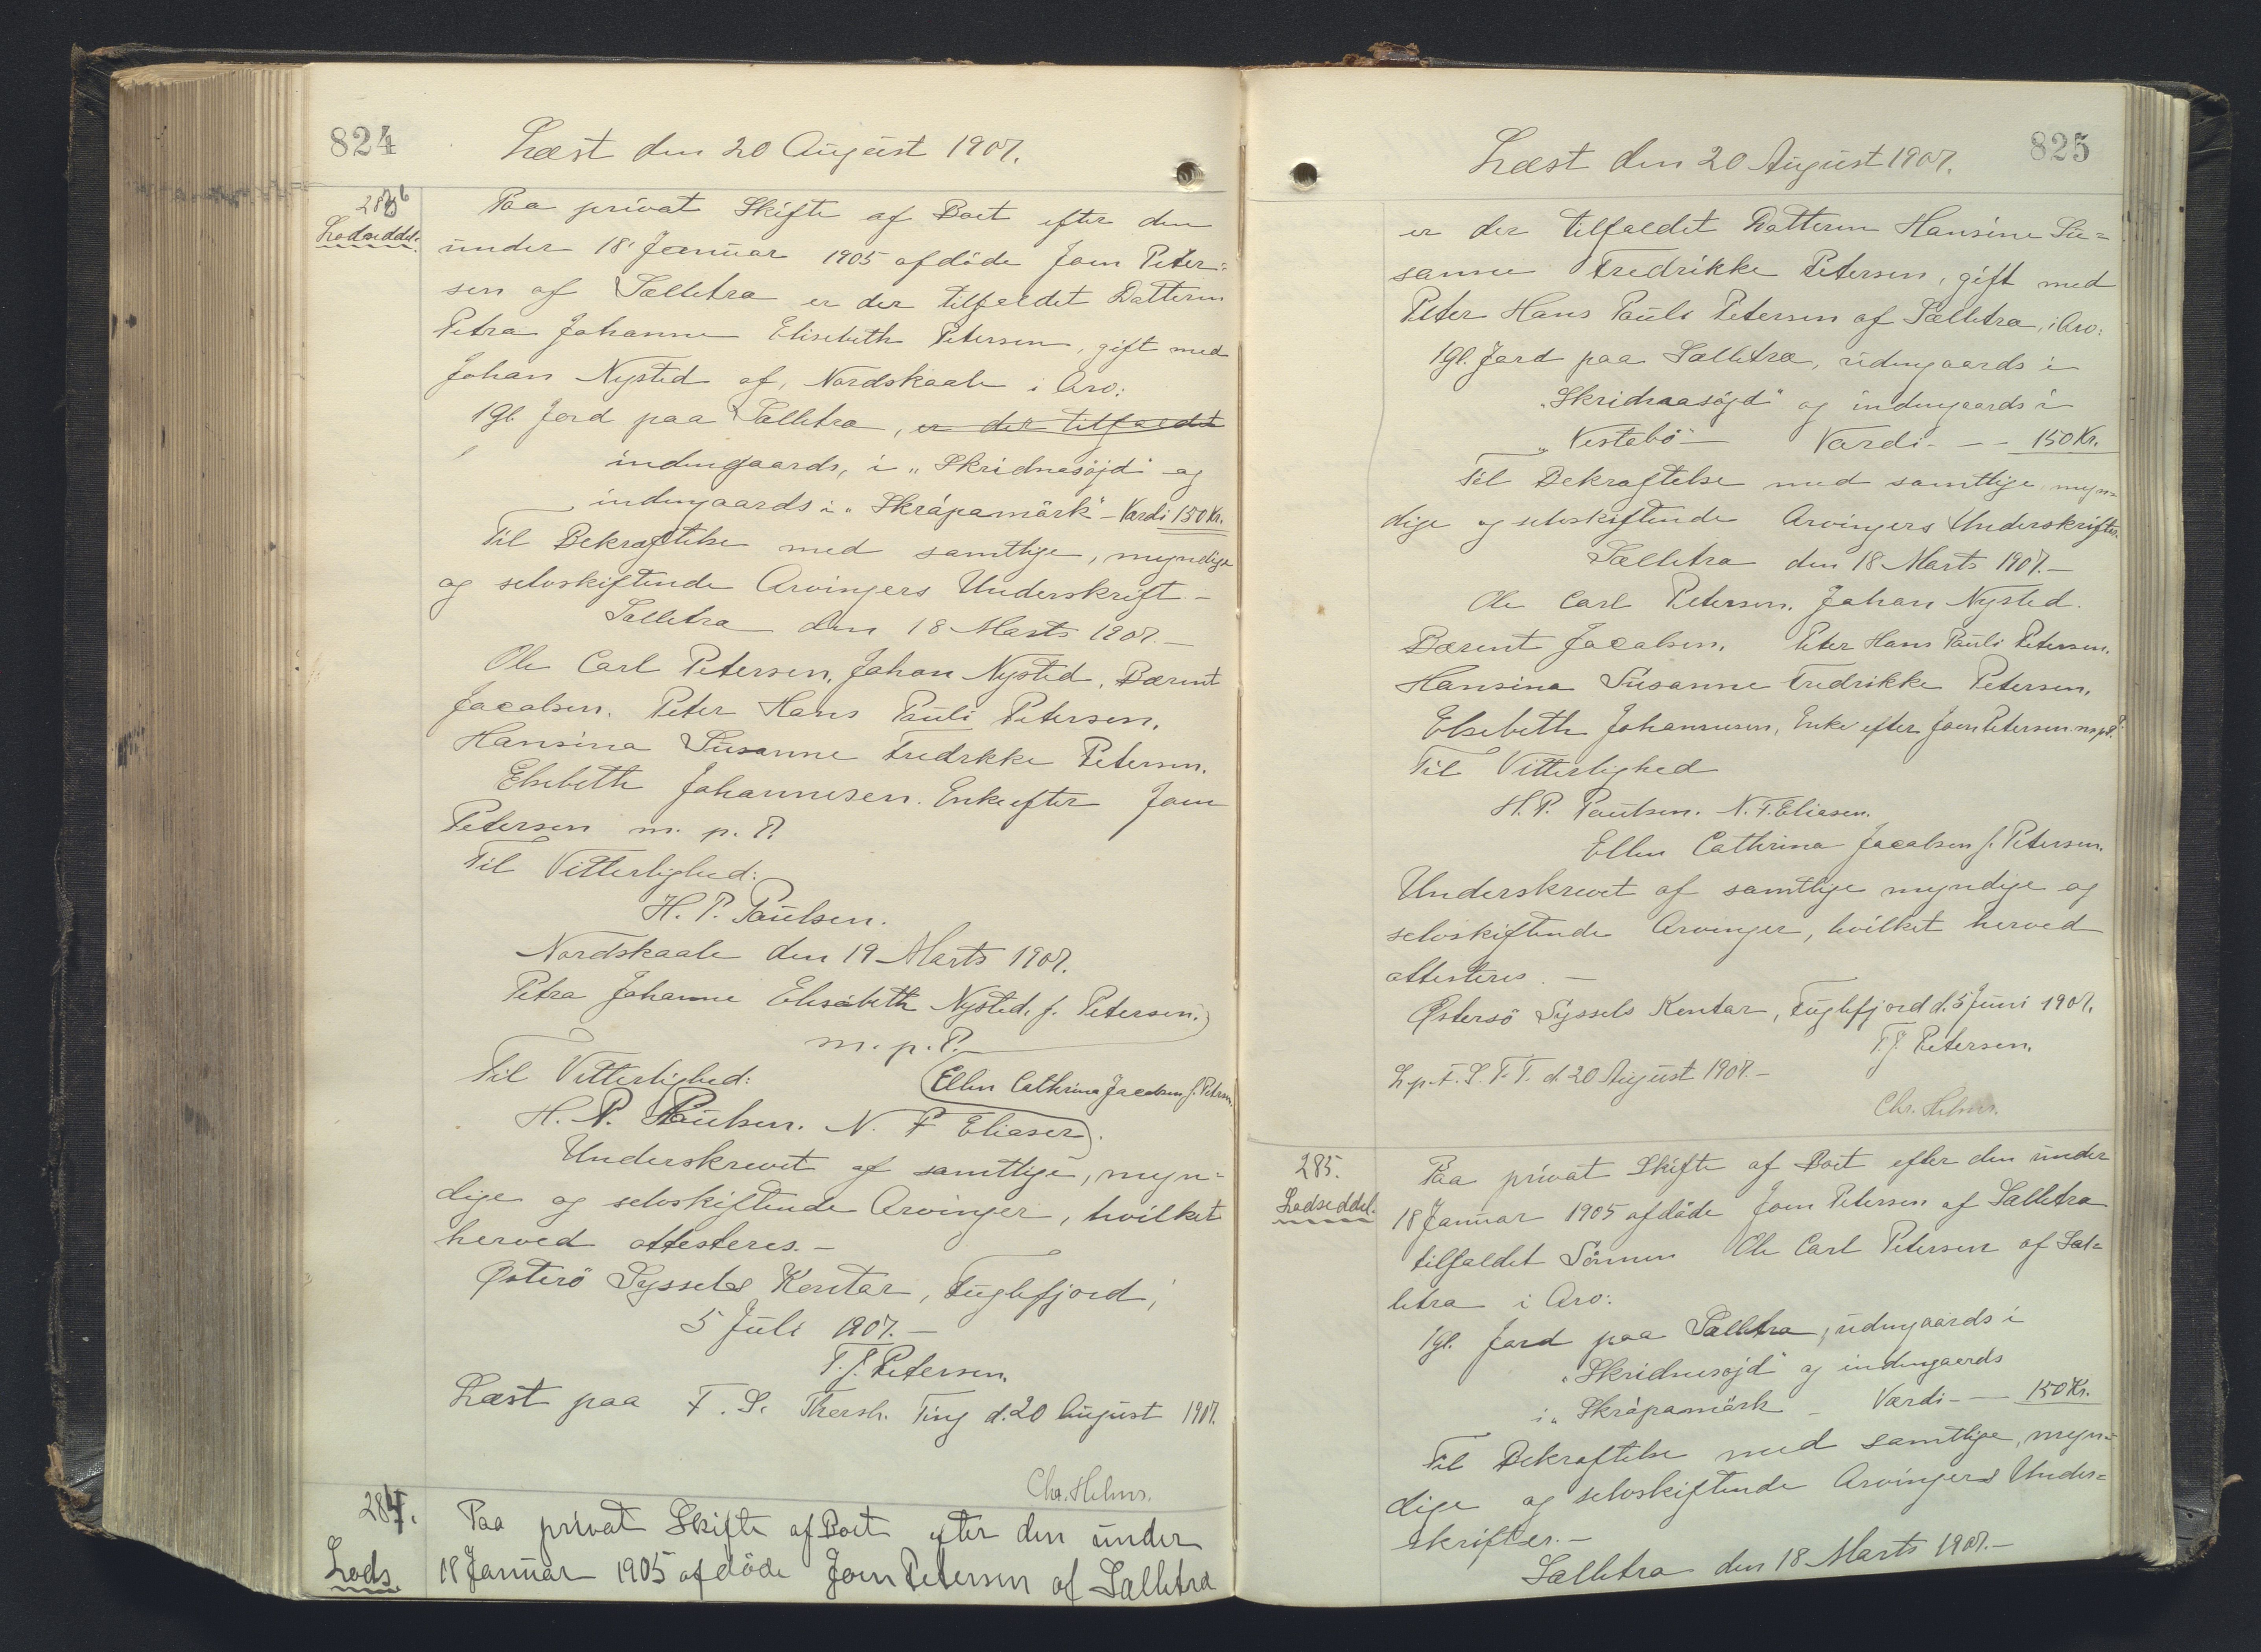 824
Læst den 20 August 1907.
286
Lodseddel.
Paa privat Skifte af Boet efter den
under 18' Januar 1905 afdöde Joen Peter=
sen af Selletra er der tilfaldet Datteren
Petra Johanne Elisebeth Petersen, gift med
Johan Nysted af, Nordskaale i Arv:
1 Gl. Jord paa Selletra, er der tilfaldet
indengaards, i „Skridnasöjd" og
indengaards i „Skrápamörk" - Værdi 150 Kr.
Til Bekræftelse med samtlige, myndige
og selvskiftende Arvingers Underskrift. -
Selletra den 18 Marts 1907. -
Ole Carl Petersen, Johan Nysted, Bærent
Jacobsen. Peter Hans Pauli Petersen.
Hansina Susanne Fredrikke Petersen.
Elsebeth Johannesen. Enke efter Joen
Petersen m. p. P.
Til Vitterlighed:
H. P. Poulsen.
Nordskaale den 19 Marts 1907.
Petra Johanne Elisabeth Nysted, f. Petersen.
m. p. P.
Til Vitterlighed:
Ellen Cathrina Jacobsen f. Petersen.
H. P. Poulsen. N. F. Eliasen.
Underskrevet af samtlige, myn=
dige og selvskiftende Arvinger, hvilket
herved attesteres. -
Østerö Syssels Kontor, Fuglefjord,
5 Juli 1907. -
T. J. Petersen.
Læst paa F. S. Thersh. Ting d. 20 August 1907.
Chr. Helms.
284.
Lods
Paa privat Skifte af Boet efter den under
18 Januar 1905 afdöde Joen Petersen af Selletra
825
Læst den 20 August 1907.
er der tilfaldet Datteren Hansine Su=
sanne Fredrikke Petersen, gift med
Peter Hans Pauli Petersen af Selletra, i Arv:
1 Gl. Jord paa Selletra, udengaards i
„Skridnasöjd" og indengaards i
„Vestebö" - Værdi - - - 150 Kr.
Til Bekræftelse med samtlige myn=
dige og selvskiftende Arvingers Underskrifter.
Selletra den 18 Marts 1907. -
Ole Carl Petersen. Johan Nysted.
Bærent Jacobsen. Peter Hans Pauli Petersen.
Hansina Susanne Fredrikke Petersen.
Elsebeth Johannesen, Enke efter Joen Petersen m.p.P.
Til Vitterlighed
H. P. Poulsen. N. F. Eliasen.
Ellen Cathrina Jacobsen f. Petersen.
Underskrevet af samtlige myndige og
selvskiftende Arvinger, hvilket herved
attesteres. -
Østersö Syssels Kontor, Fuglefjord d. 5 Juni 1907.
T. J. Petersen.
L. p. F. S. T. T. d. 20 August 1907. -
Chr. Helms.
285.
Lodseddel.
Paa privat Skifte af Boet efter den under
18 Januar 1905 afdöde Joen Petersen af Selletra
tilfaldet Sönnen Ole Carl Petersen af Sel=
letra i Arv:
1 gl. Jord paa Selletra, udengaards i
„Skridnesojd" og indengaards
i „Skrápamörk - Værdi - - 150 Kr.
Til Bekræftelse med samtlige, myn=
dige og selvskiftende Arvingers Under=
skrifter. -
Selletra den 18 Marts 1907. -